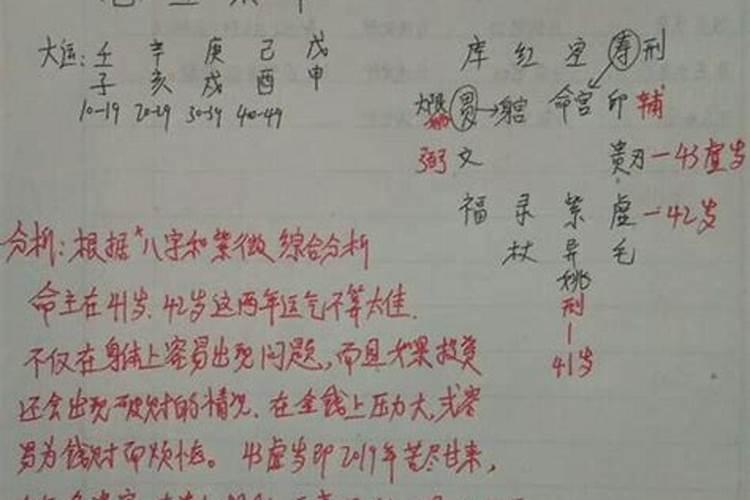 大运: 壬 辛 庚 己 戊
子 亥 戌 酉 申
10-19 20-29 30-39 40-49
库 红 空 寿 刑
大限 贯→ 命宫 印 辅
弼 文 贵 刃—43虚岁
福 录 紫 虚—42岁
杖 异 毛
姚
刑
41岁
分析: 根据八字和紫微综合分析
命主在41岁、42岁这两年运气不算太佳.
不仅在身体上容易出现问题,而且如果投资
还会出现破财的情况.在金钱上压力大,或容
易为钱财而烦恼。43虚岁即2019年苦尽甘来,